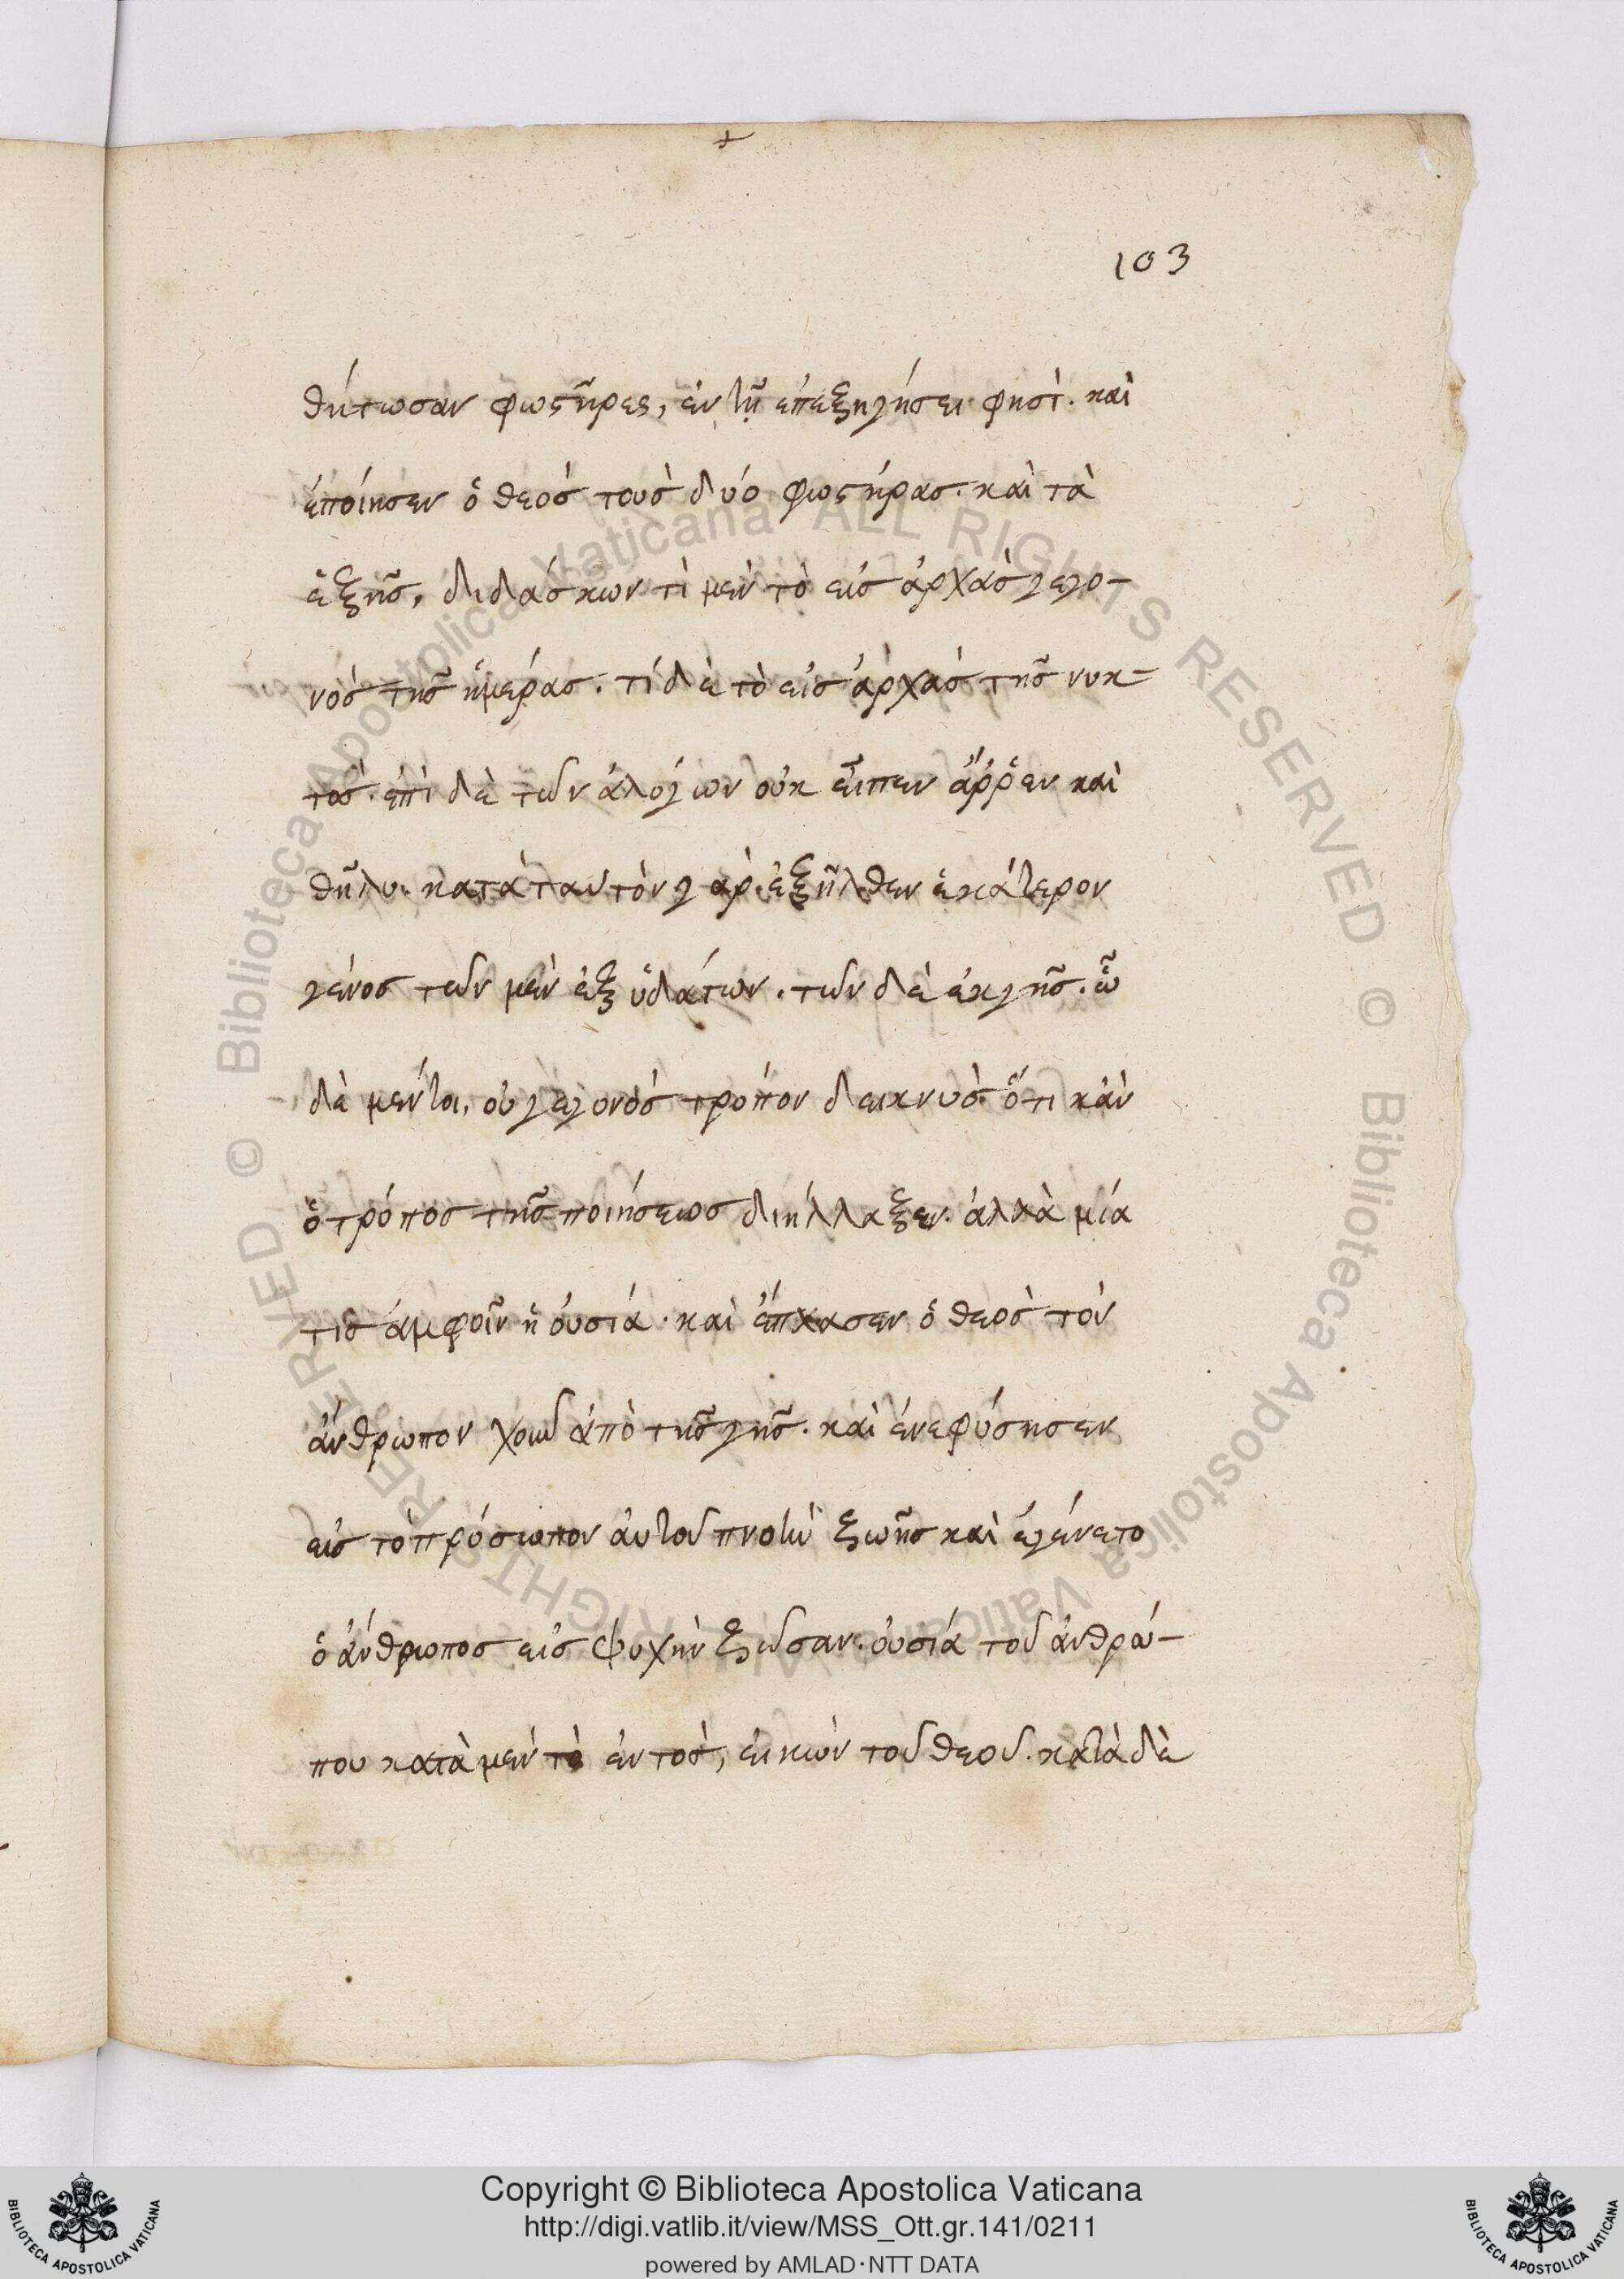 103
θήτωσαν φωστῆρες, ἐν τῇ ἐπεξηγήσει φησὶ. καὶ
ἐποίησεν ὁ θεὸς τοὺς δύο φωστήρας. καὶ τὰ
ἑξῆς, διδάσκων τὶ μὲν τὸ εἰς ἀρχὰς γεγο-
νὸς τῆς ἡμέρας. τί δὲ τὸ εἰς ἀρχὰς τῆς νυκ-
τὸς. ἐπὶ δὲ τῶν ἀλόγων οὐκ εἶπεν ἄῤῥεν καὶ
θῆλυ. κατὰ ταυτὸν γὰρ ἐξῆλθεν ἑκάτερον
γένος τῶν μὲν ἐξ ὑδάτων. τῶν δὲ ἐκ γῆς. ὧ
δὲ μέντοι, οὐ γεγονὸς τρόπον δεικνὺς. ὅτι κἀν
ὁ τρόπος τῆς ποιήσεως διήλλαξεν. ἀλλὰ μία
τις ἀμφοῖν ἡ οὐσία. καὶ ἔπλασεν ὁ θεὸς τὸν
ἄνθρωπον χοῦν ἀπὸ τῆς γῆς. καὶ ἐνεφύσησεν
εἰς τὸ πρόσωπον αὐτοῦ πνοὴν ζωῆς καὶ ἐγένετο
ὁ ἄνθρωπος εἰς ψυχὴν ζῶσαν. οὐσία τοῦ ἀνθρώ-
που κατὰ μὲν τὸ ἐντὸς, εἰκὼν τοῦ θεοῦ. κατὰ δὲ
© Biblioteca Apostolica Vaticana ALL RIGHTS RESERVED © Biblioteca Apostolica Vaticana ALL RIGHTS RESERVED
Copyright © Biblioteca Apostolica Vaticana
http://digi.vatlib.it/view/MSS_Ott.gr.141/0211
powered by AMLAD·NTT DATA
BIBLIOTECA APOSTOLICA VATICANA
BIBLIOTECA APOSTOLICA VATICANA